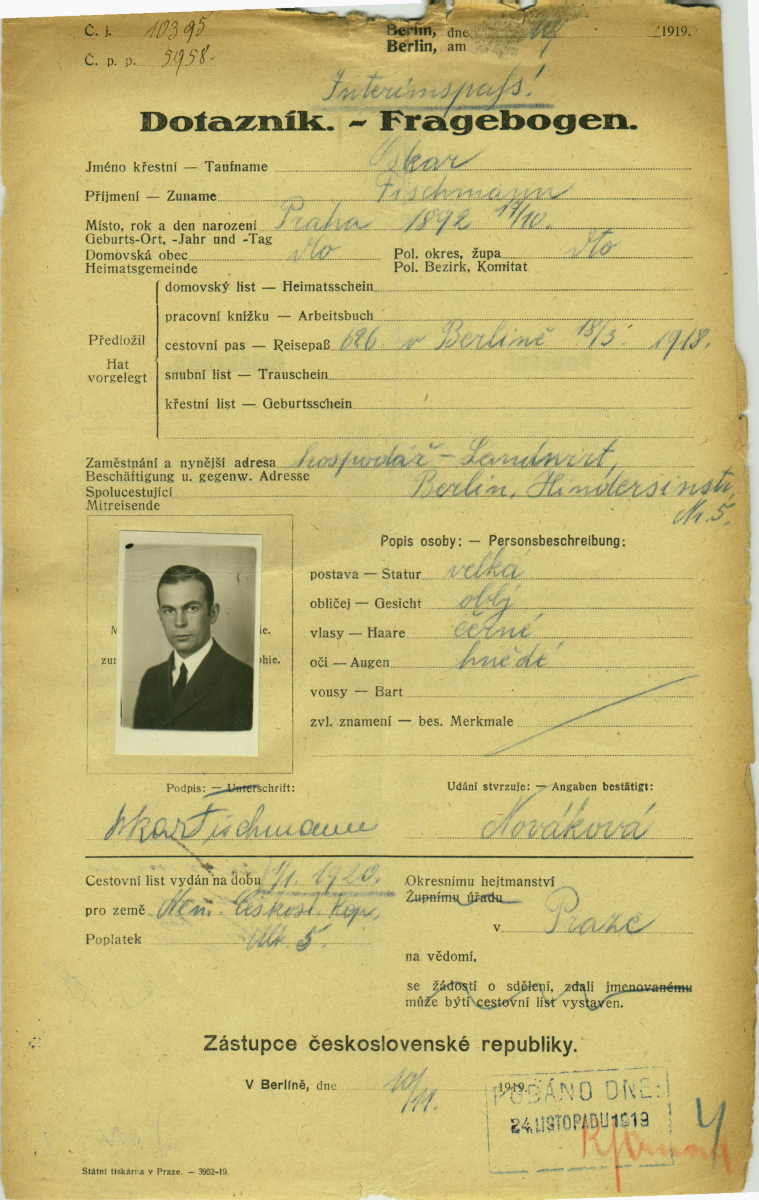 Č. j. 10395
Berlin, dne 1919.
Berlin, am
Č. p. p. 5958.
Interimspass!
Dotazník. - Fragebogen.
Jméno křestní — Taufname Oskar
Příjmení — Zuname Fischmann
Místo, rok a den narození Praha 1892 17/10.
Geburts-Ort, -Jahr und -Tag
Domovská obec dto Pol. okres, župa dto
Heimatsgemeinde Pol. Bezirk, Komitat
domovský list — Heimatsschein
pracovní knížku — Arbeitsbuch
Předložil
cestovní pas — Reisepaß 626 v Berlině 18/5. 1918.
Hat
vorgelegt
snubní list — Trauschein
křestní list — Geburtsschein
Zaměstnání a nynější adresa hospodář - Landwirt,
Beschäftigung u. gegenw. Adresse Berlin, Hindersinstr,
Spolucestující
Nr. 5.
Mitreisende
Popis osoby: — Personsbeschreibung:
postava — Statur velká
obličej — Gesicht oblý
vlasy — Haare černé
oči — Augen hnědé
vousy — Bart
zvl. znamení — bes. Merkmale
Podpis: — Unterschrift: Udání stvrzuje: — Angaben bestätigt:
Oskar Fischmann Nováková
Cestovní list vydán na dobu 1920. Okresnímu hejtmanství
Župnímu úřadu
pro země Něm. Českosl. Rep.
v Praze
Poplatek Mk. 5.
na vědomí,
se žádostí o sdělení, zdali jmenovanému
může býti cestovní list vystaven.
Zástupce československé republiky.
V Berlíně, dne 10/11. 1919.
PODÁNO DNE:
24. LISTOPADU 1919
Státní tiskárna v Praze. — 3952-19.